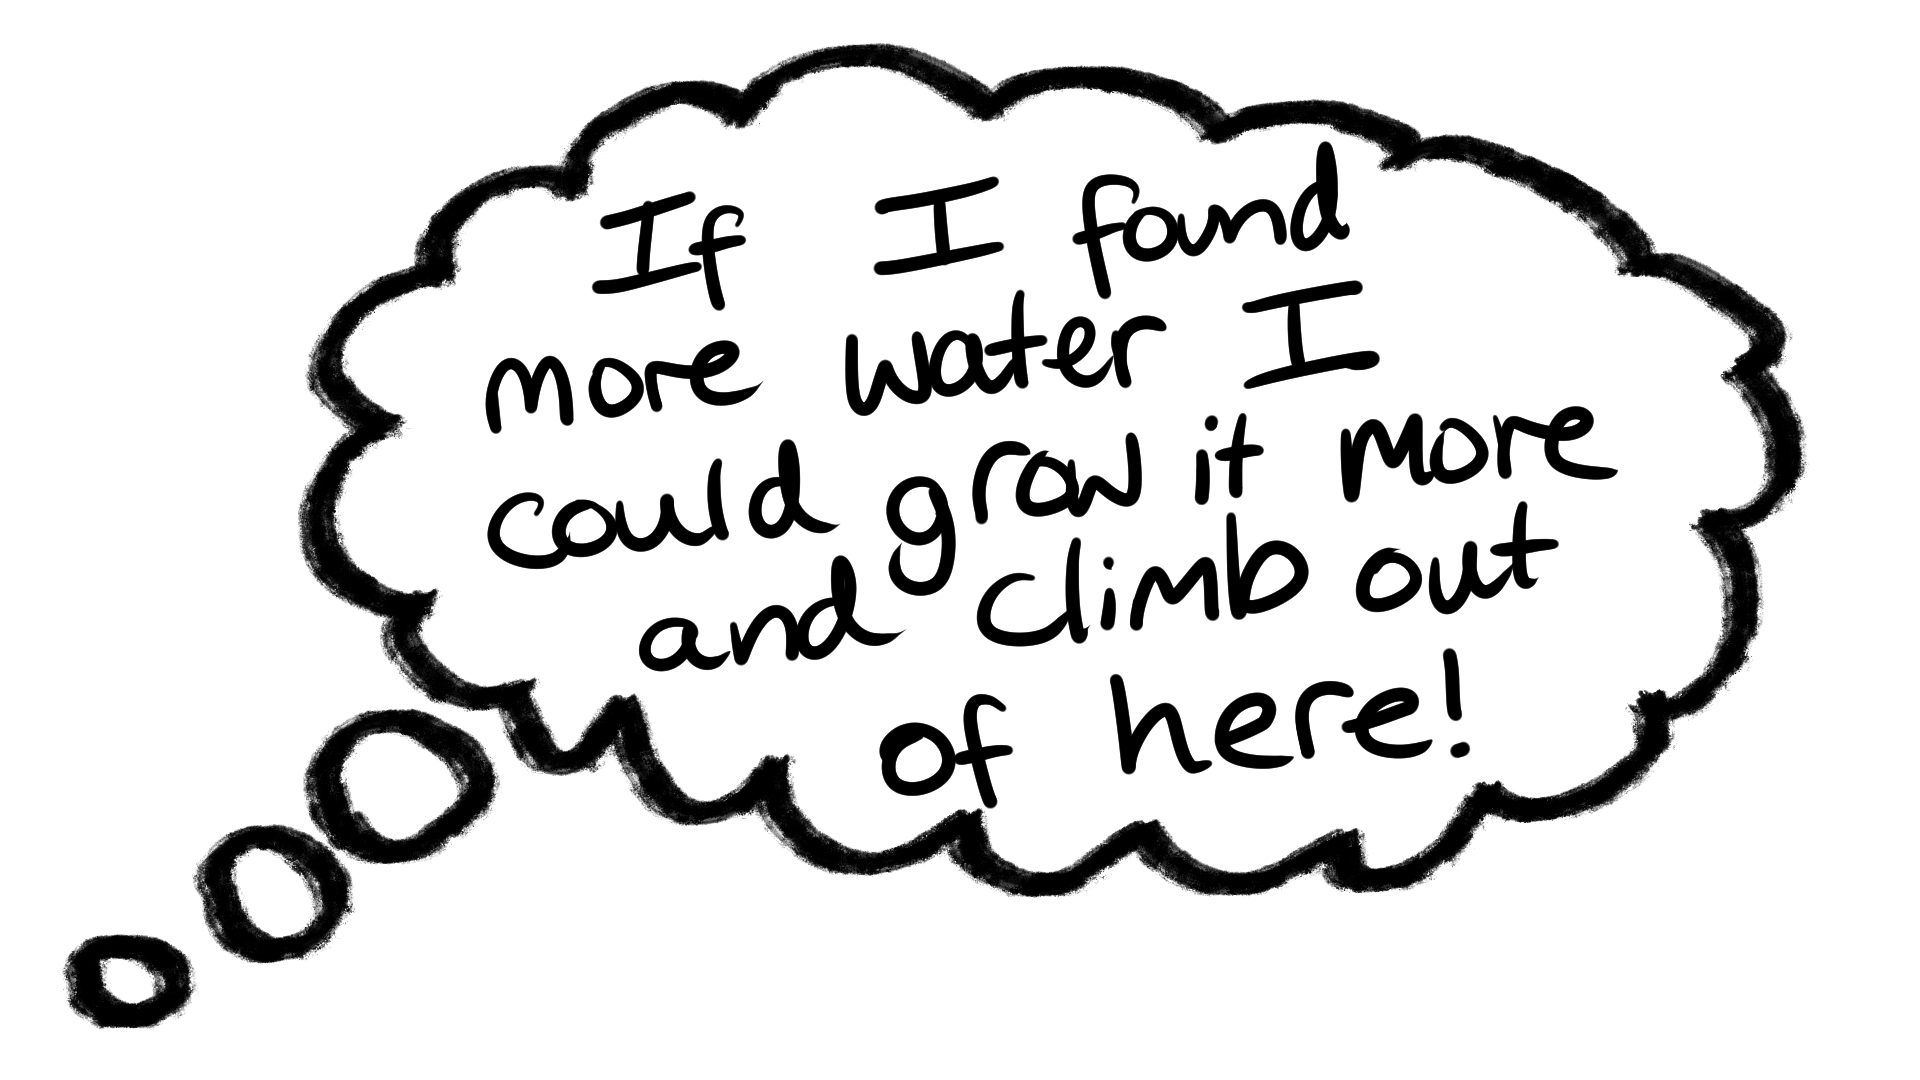 If I found
more water I
could grow it more
and climb out
of here!